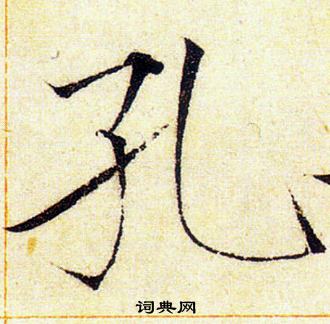 孔
词典网